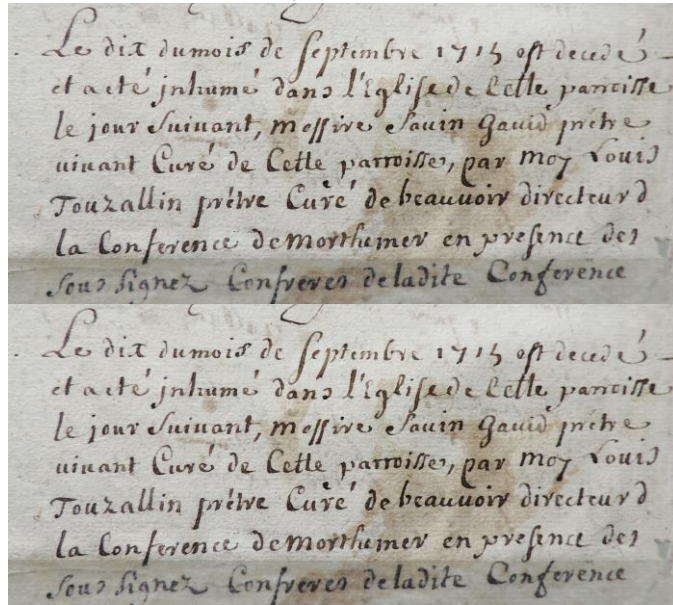 Le dix du mois de Septembre 1715 est decedé
et a eté inhumé dans l'Eglise de Cette parroisse
le jour suivant, messire Savin Gavid prétre
vivant Curé de Cette parroisse, par moy Louis
Touzallin prétre Curé de beauvoir directeur d
la Conference de morthemer en presence des
sous signez Confreres de ladite Conference
Le dix du mois de Septembre 1715 est decedé
et a eté inhumé dans l'Eglise de Cette parroisse
le jour suivant, messire Savin Gavid prétre
vivant Curé de Cette parroisse, par moy Louis
Touzallin prétre Curé de beauvoir directeur d
la Conference de morthemer en presence des
sous signez Confreres de ladite Conference